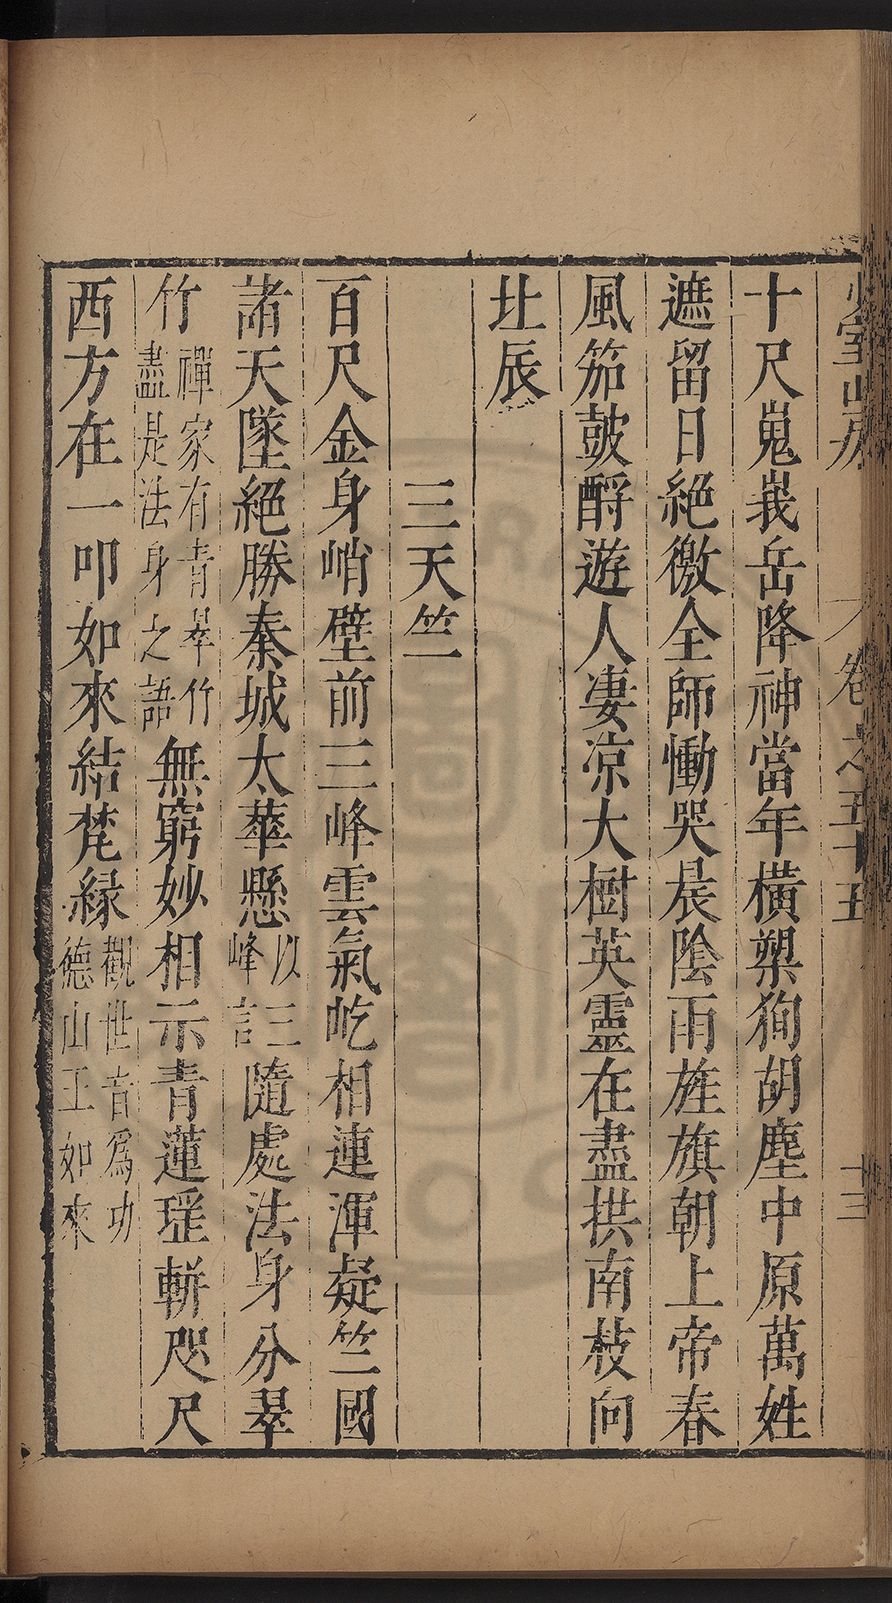 十尺嵬峩岳降神當年橫槊狥胡塵中原萬姓
遮留日絕徼全師慟哭晨陰雨旌旗朝上帝春
風笳鼓酹遊人凄凉大樹英靈在盡拱南枝向
北辰
三天竺
百尺金身峭壁前三峰雲氣屹相連渾疑竺國
諸天墜絕勝秦城太華懸以三峰言隨處法身分翠
竹禪家有青翠竹盡是法身之語無窮妙相示青蓮瑶缾咫尺
西方在一叩如來結梵緣觀世音爲功德山王如來
卷之五十五
十三